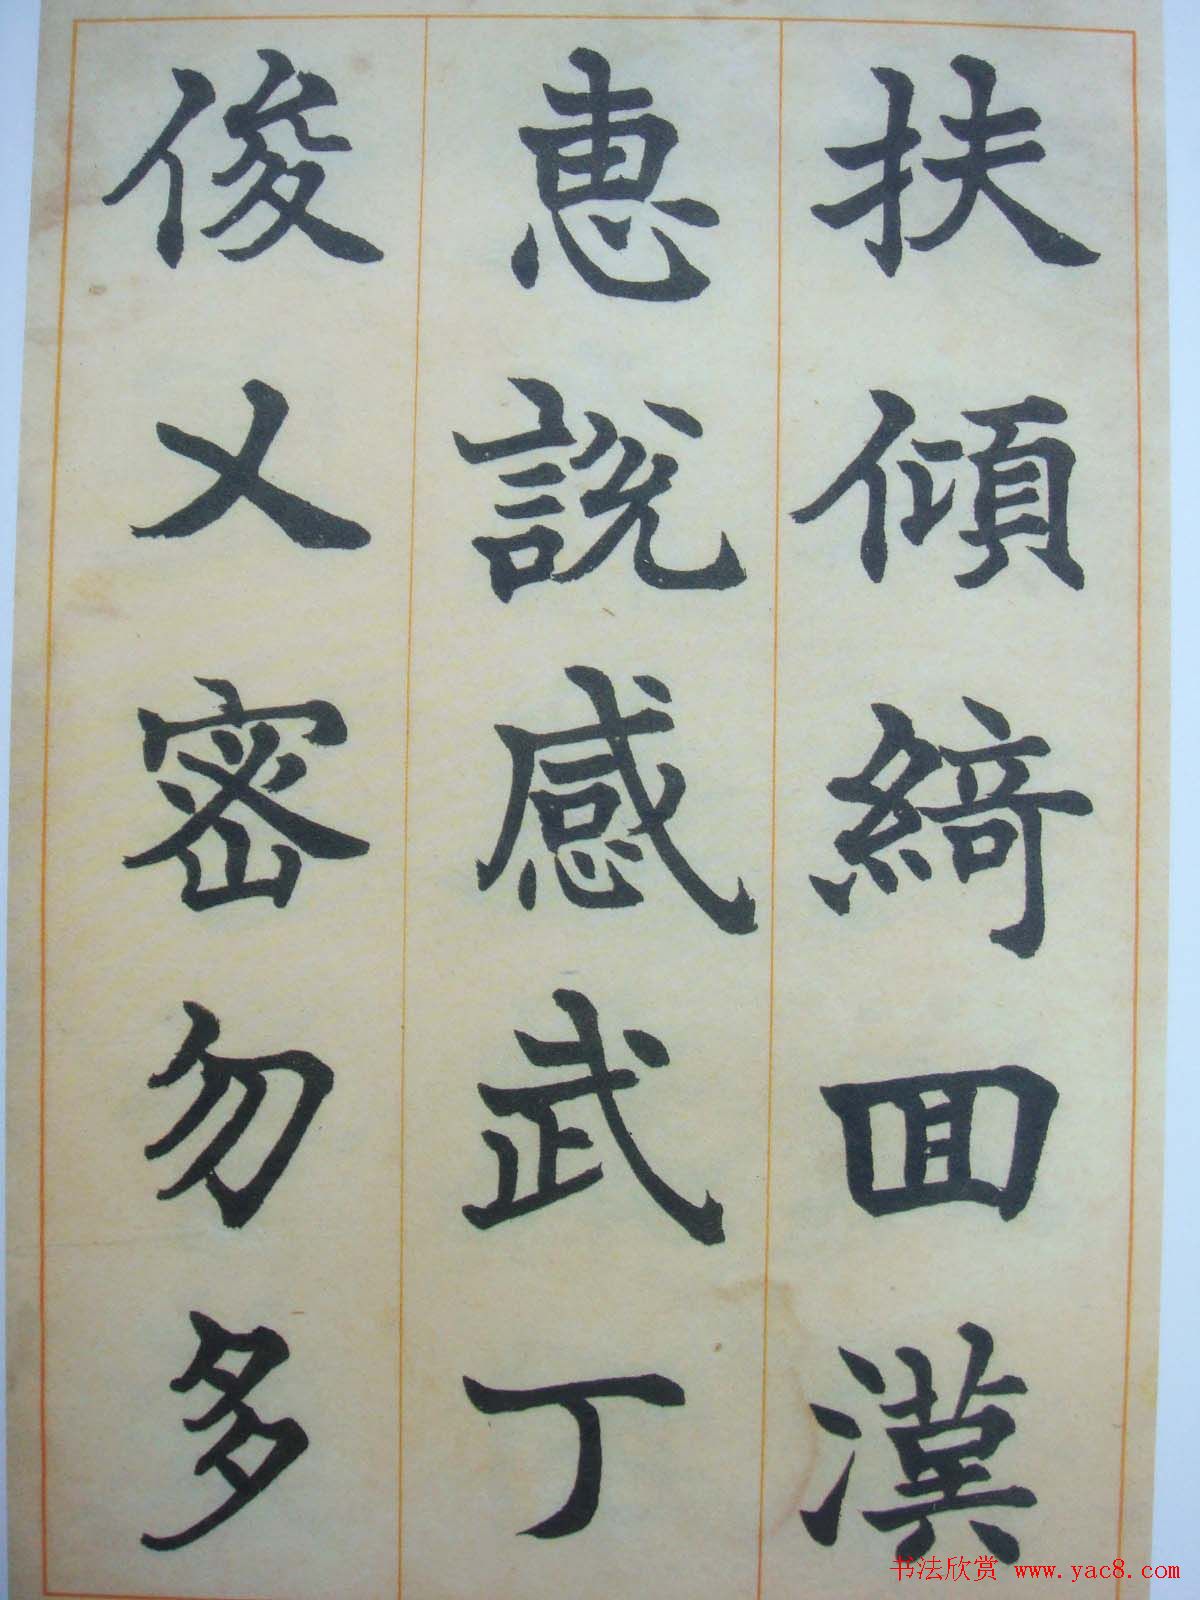 扶傾綺回漢
惠說感武丁
俊乂密勿多
书法欣赏 www.yac8.com